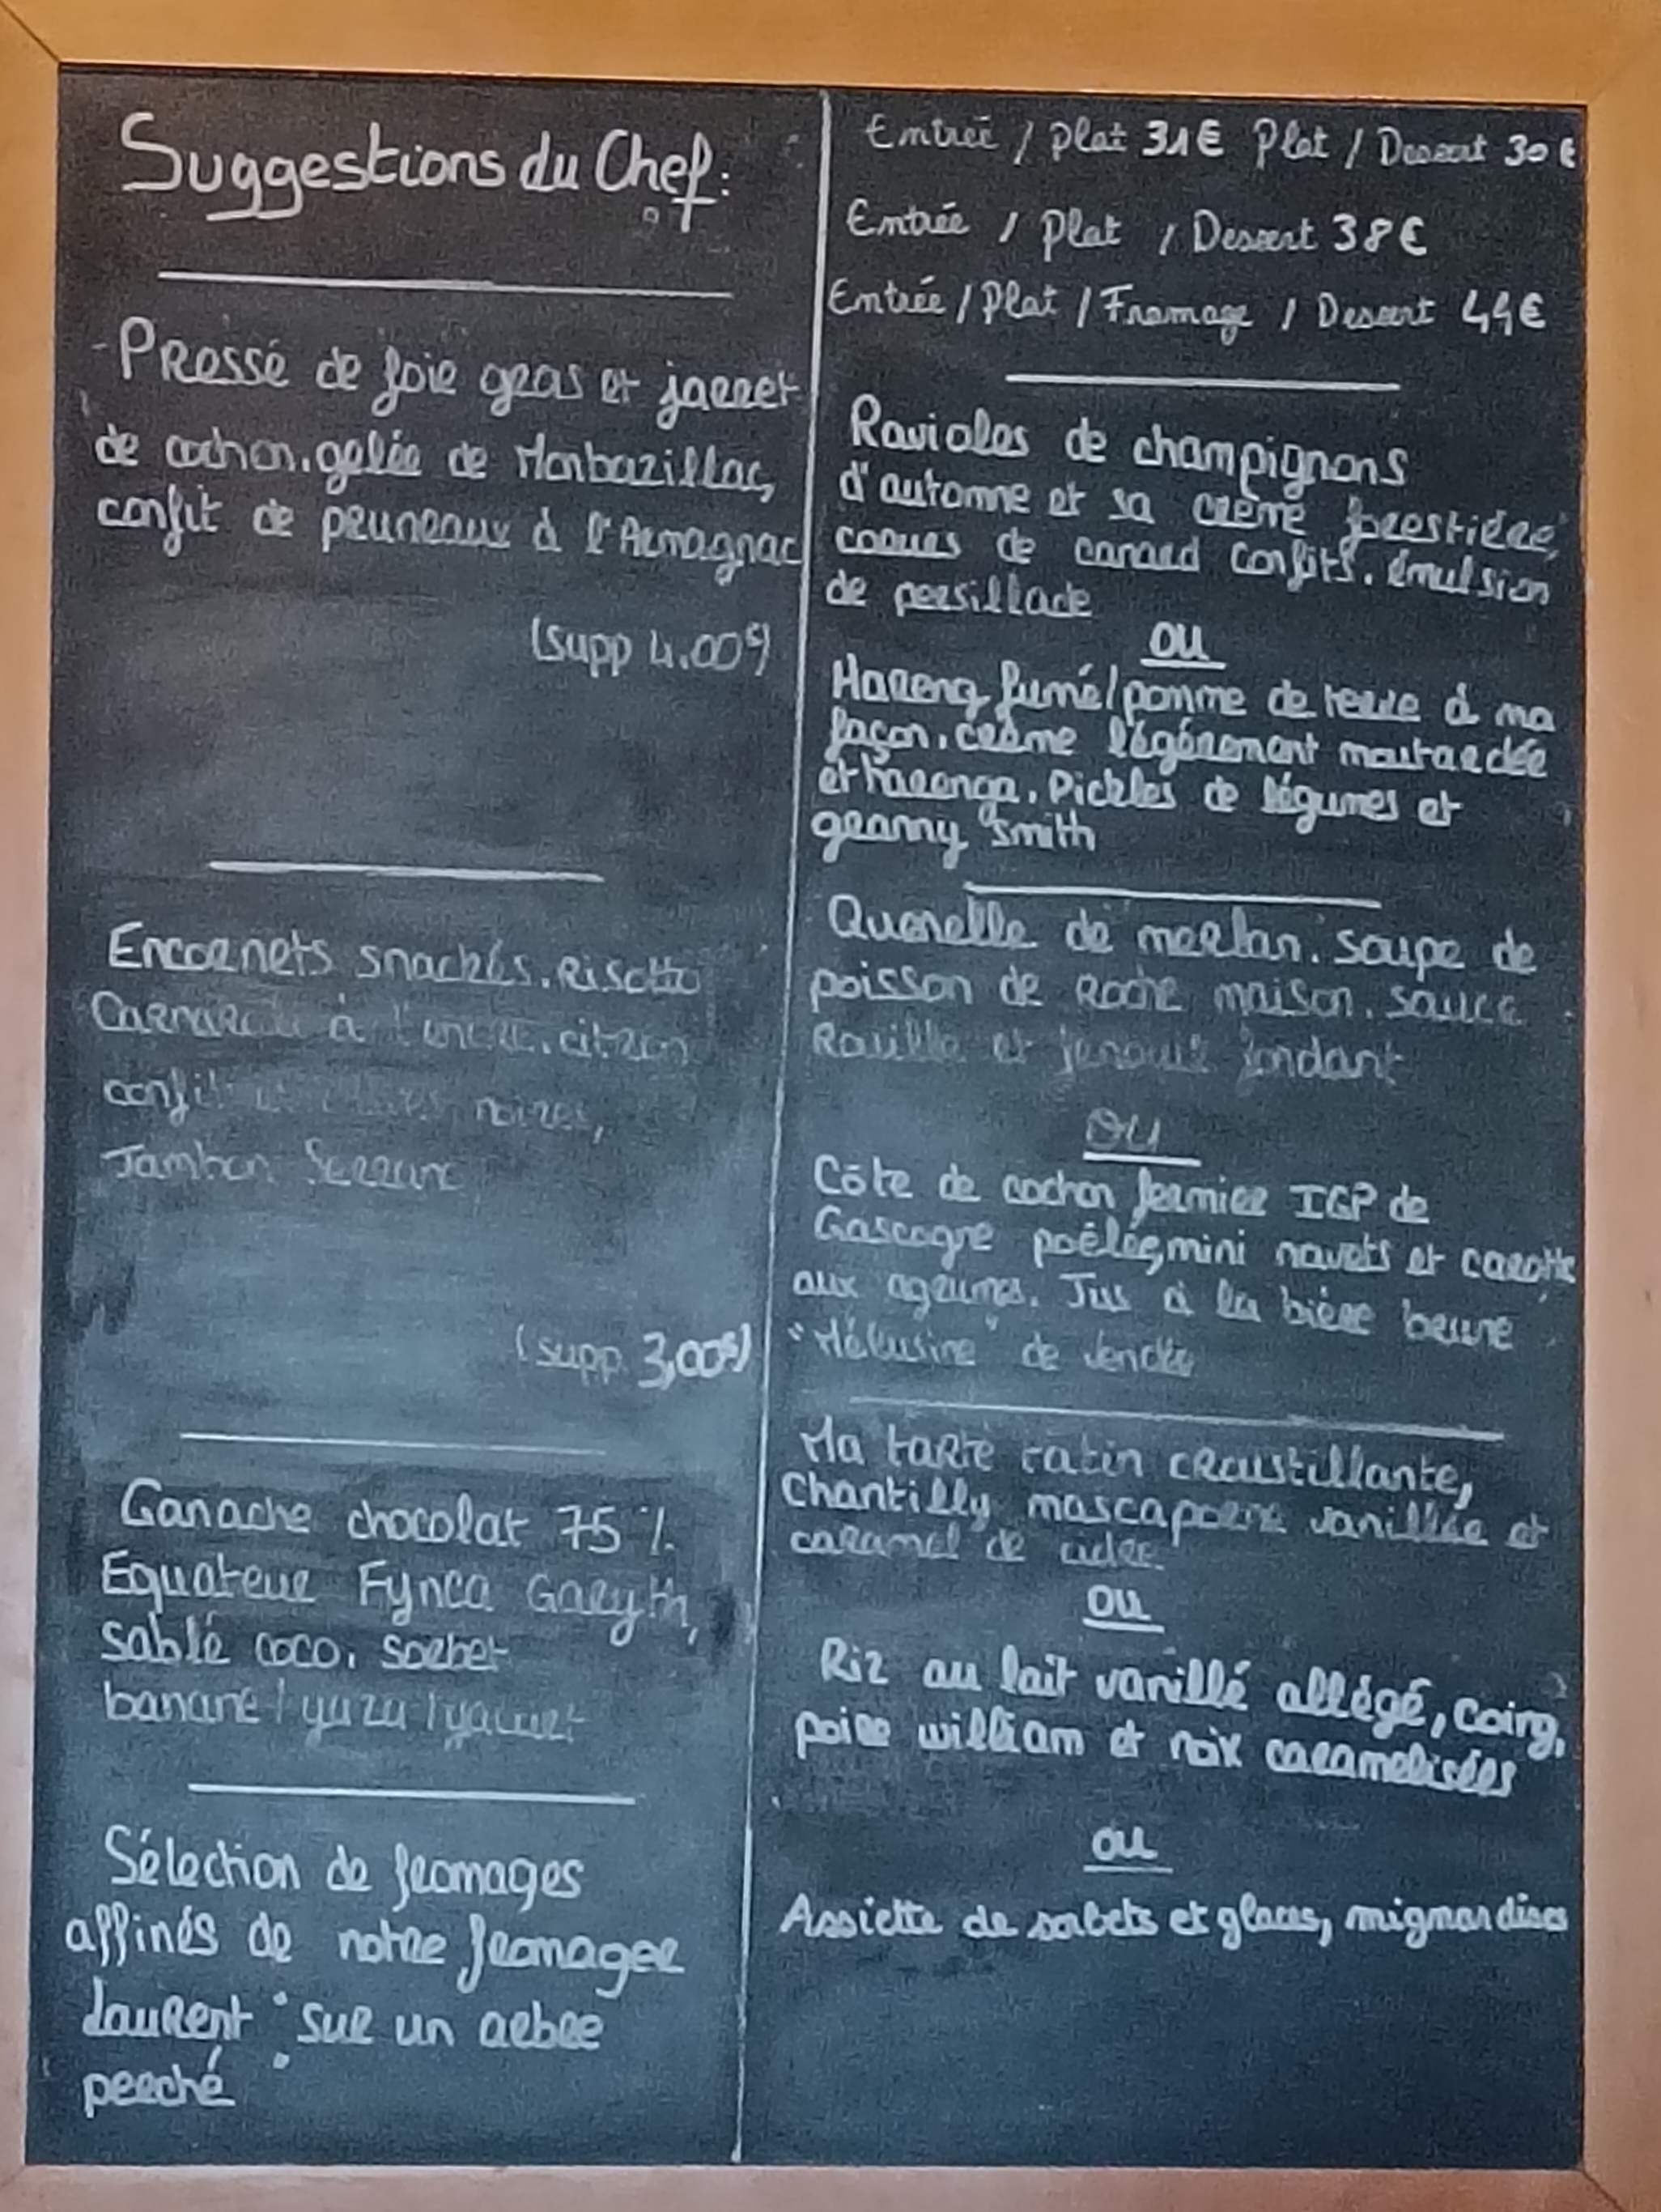 Suggestions du Chef:
- Pressé de foie gras et jarret
de cochon, gelée de Monbazillac,
confit de pruneaux à l'Armagnac
(supp 4.00€)
Encornets snackés. Risotto
Carnaroli à l'encre, citron
confit noires,
Jambon Serrano
(supp 3,00€)
Ganache chocolat 75%
Equateur Fynca Garyth,
sablé coco, sorbet
banane/yuzu/yaourt
Sélection de fromages
affinés de notre fromager
Laurent "sur un arbre
perché"
Entrée / Plat 31€ Plat / Dessert 30€
Entrée / Plat / Dessert 38€
Entrée / Plat / Fromage / Dessert 44€
Ravioles de champignons
d'automne et sa crème forestière,
coeurs de canard confits. émulsion
de persillade
ou
Hareng fumé/pomme de terre à ma
façon, crème légèrement moutardée
et harenga. Pickles de légumes et
granny smith
Quenelle de merlan. soupe de
poisson de roche maison. sauce
Rouille et fenouil fondant
ou
Côte de cochon fermier IGP de
Gascogne poêlée, mini navets et carotte
aux agrumes. Jus à la bière brune
"Mélusine" de Vendée
Ma tarte tatin craustillante,
Chantilly mascarpone vanillée et
caramel de cidre
ou
Riz au lait vanillé allégé, coing,
poire william et noix caramélisées
ou
Assiette de sorbets et glaces, mignardises